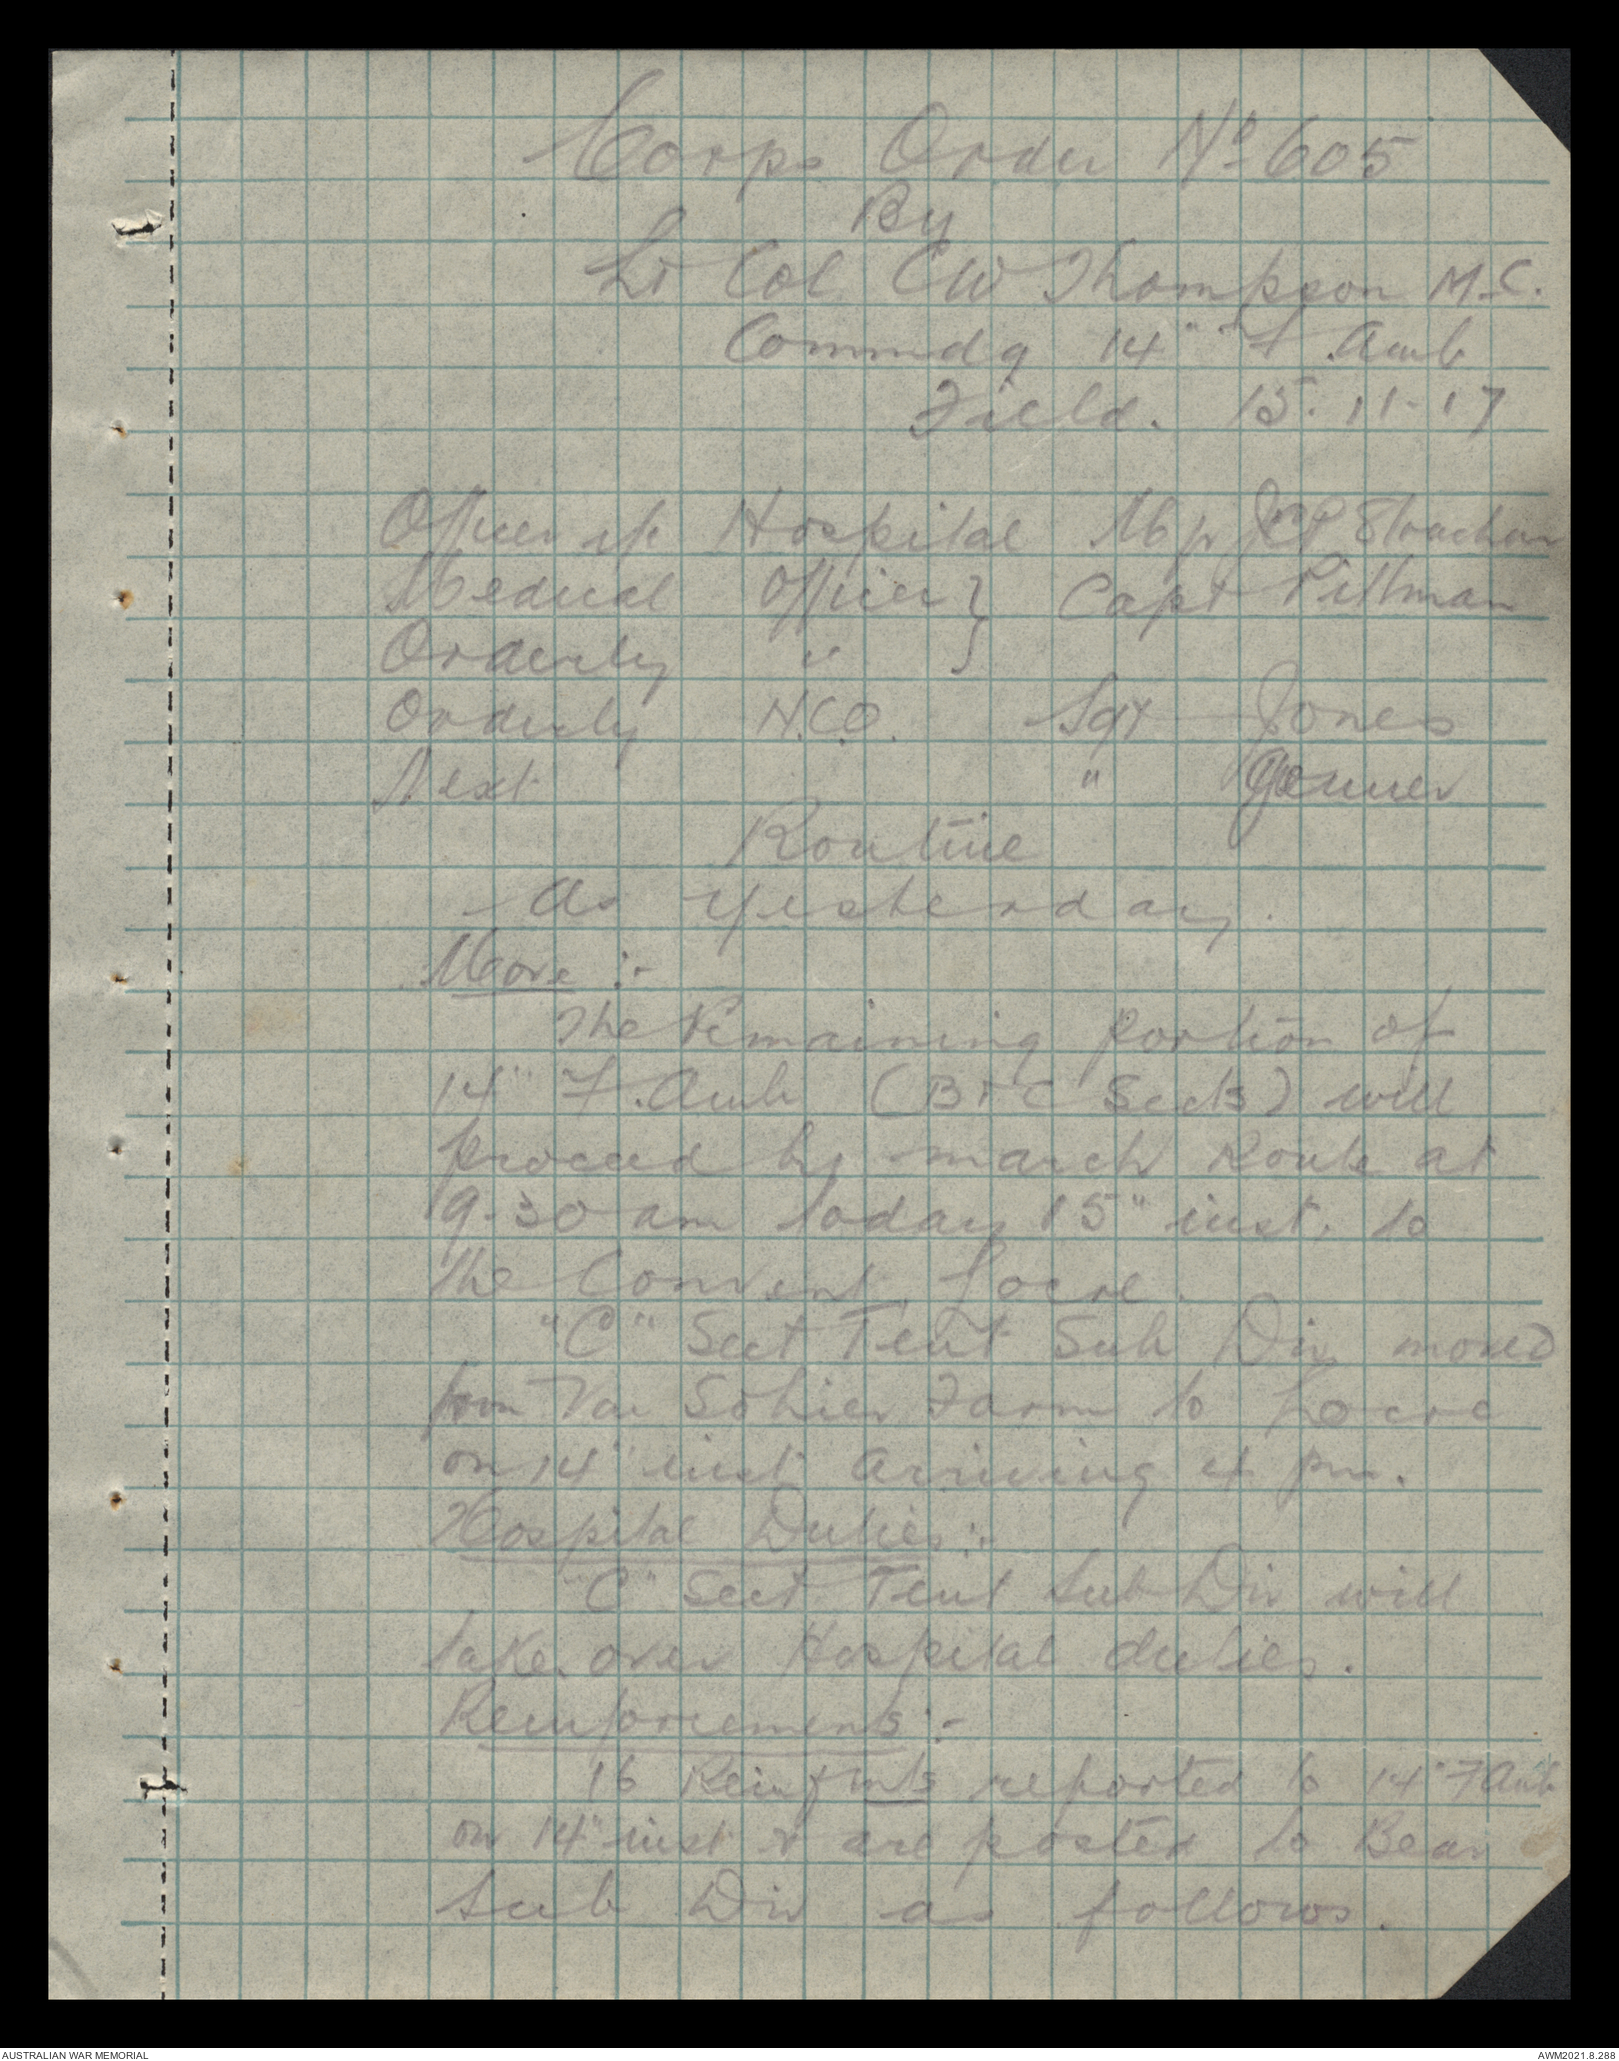 Corps Order No 605
By
Lt Col CW Thompson M.C.
Commdg 14" F. Amb
Field. 15.11.17
Officer i/c Hospital Maj JCP Strachan
Medical Officer } Capt Pittman
Orderly " }
Orderly N.C.O. Sgt Jones
Next "
Routine
As yesterday.
Move :-
The Remaining portion of
14" F. Amb (B + C Sects) will
proceed by march Route at
9-30 am today 15" inst. to
the Convent, Locre.
"C" Sect Tent Sub Div moved
from Farm to Locre
on 14" inst arriving 4 pm.
Hospital Duties :-
"C" Sect. Tent Sub Div will
take over Hospital duties.
Reinforcements :-
16 Reinfmts reported to 14" F Amb
on 14" inst & are posted to Bear
Sub Div as follows.
AUSTRALIAN WAR MEMORIAL
AWM2021.8.288